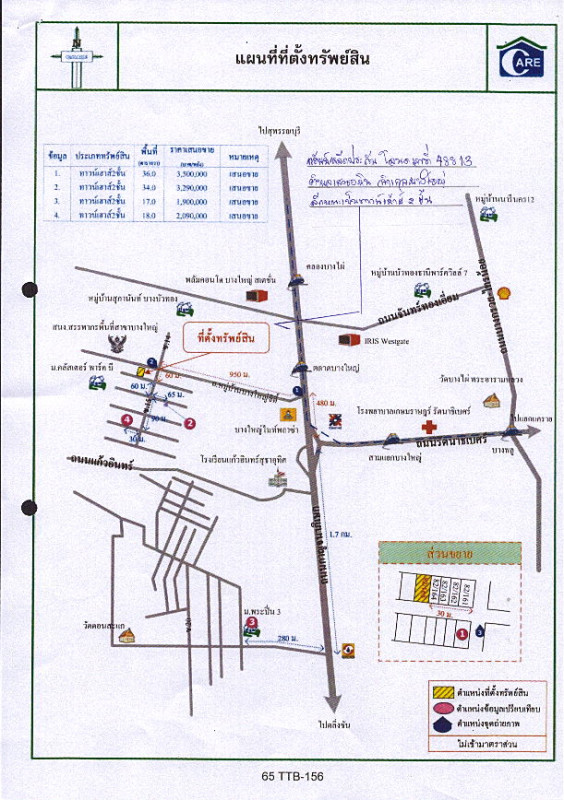 แผนที่ที่ตั้งทรัพย์สิน
CARE
ไปสุพรรณบุรี
ข้อมูล ประเภททรัพย์สิน พื้นที่ ราคาเสนอขาย หมายเหตุ
1. ทาวน์เฮาส์2ชั้น 36.0 3,500,000 เสนอขาย
2. ทาวน์เฮาส์2ชั้น 34.0 3,290,000 เสนอขาย
3. ทาวน์เฮาส์2ชั้น 17.0 1,900,000 เสนอขาย
4. ทาวน์เฮาส์2ชั้น 18.0 2,090,000 เสนอขาย
48813
2 ชั้น
หมู่บ้านนารีนคร12
คลองบางไผ่
พลัมคอนโด บางใหญ่ สเตชั่น
หมู่บ้านบัวทองธานีพาร์ควิลล์ 7
หมู่บ้านสุภานันท์ บางบัวทอง
ถนนจันทร์ทองเอี่ยม
สนง.สรรพากรพื้นที่สาขาบางใหญ่
ที่ตั้งทรัพย์สิน
IRIS Westgate
ม.คลัสเตอร์ พาร์ค บี
ตลาดบางใหญ่
60 ม.
60 ม.
950 ม.
ถ.หมู่บ้านบางใหญ่ซิตี้
65 ม.
90 ม.
30 ม.
4
2
480 ม.
วัดบางไผ่ พระอารามหลวง
บางใหญ่ไนท์พลาซ่า
โรงพยาบาลเกษมราษฎร์ รัตนาธิเบศร์
ไปแคราย
ถนนรัตนาธิเบศร์
สามแยกบางใหญ่
บางพลู
ถนนแก้วอินทร์
โรงเรียนแก้วอินทร์สุธาอุทิศ
ถนนกาญจนาภิเษก
1.7 กม.
ส่วนขยาย
82/164
82/163
82/162
82/161
30 ม.
1
3
ม.พระปิ่น 3
3
วัดดอนสะแก
280 ม.
ไปตลิ่งชัน
ตำแหน่งที่ตั้งทรัพย์สิน
ตำแหน่งข้อมูลเปรียบเทียบ
ตำแหน่งจุดถ่ายภาพ
ไม่เข้ามาตราส่วน
65 TTB-156